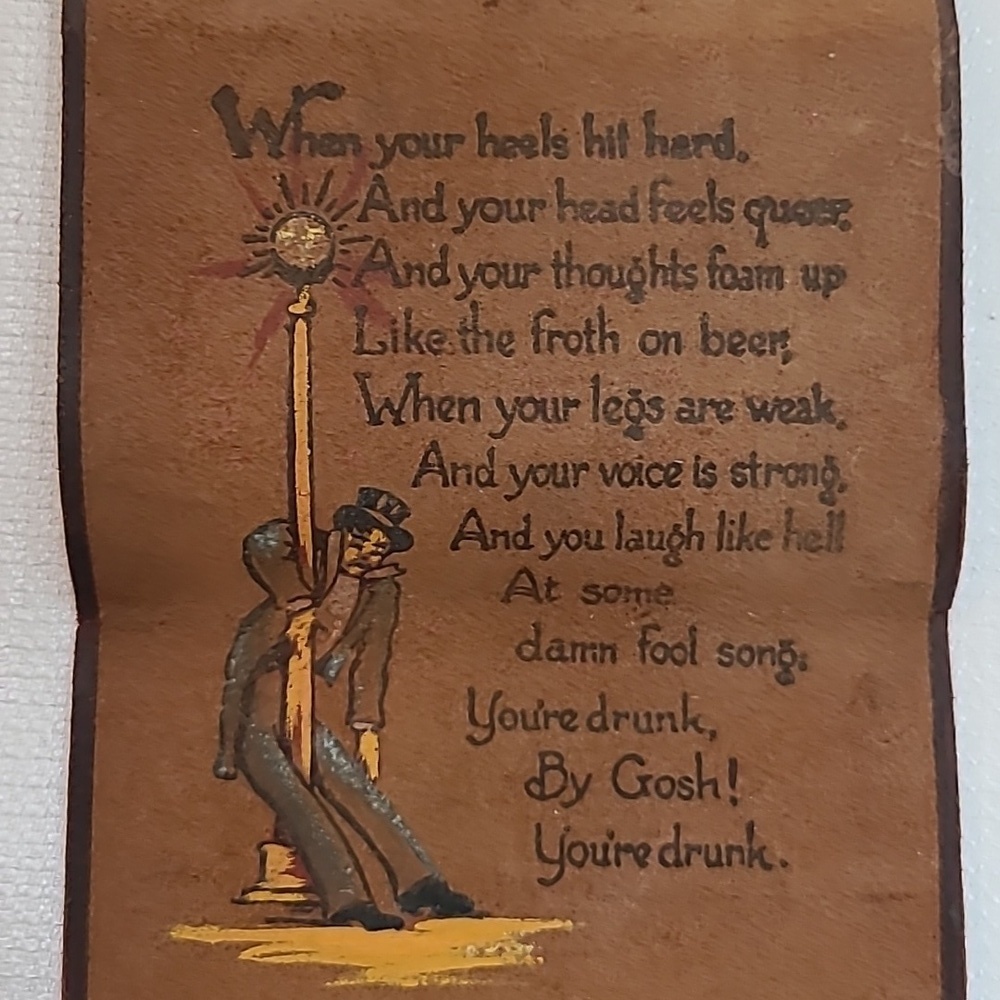 When your heels hit hard.
And your head feels queer.
And your thoughts foam up
Like the froth on beer,
When your legs are weak.
And your voice is strong,
And you laugh like hell
At some
damn fool song;
You're drunk,
By Gosh!
You're drunk.